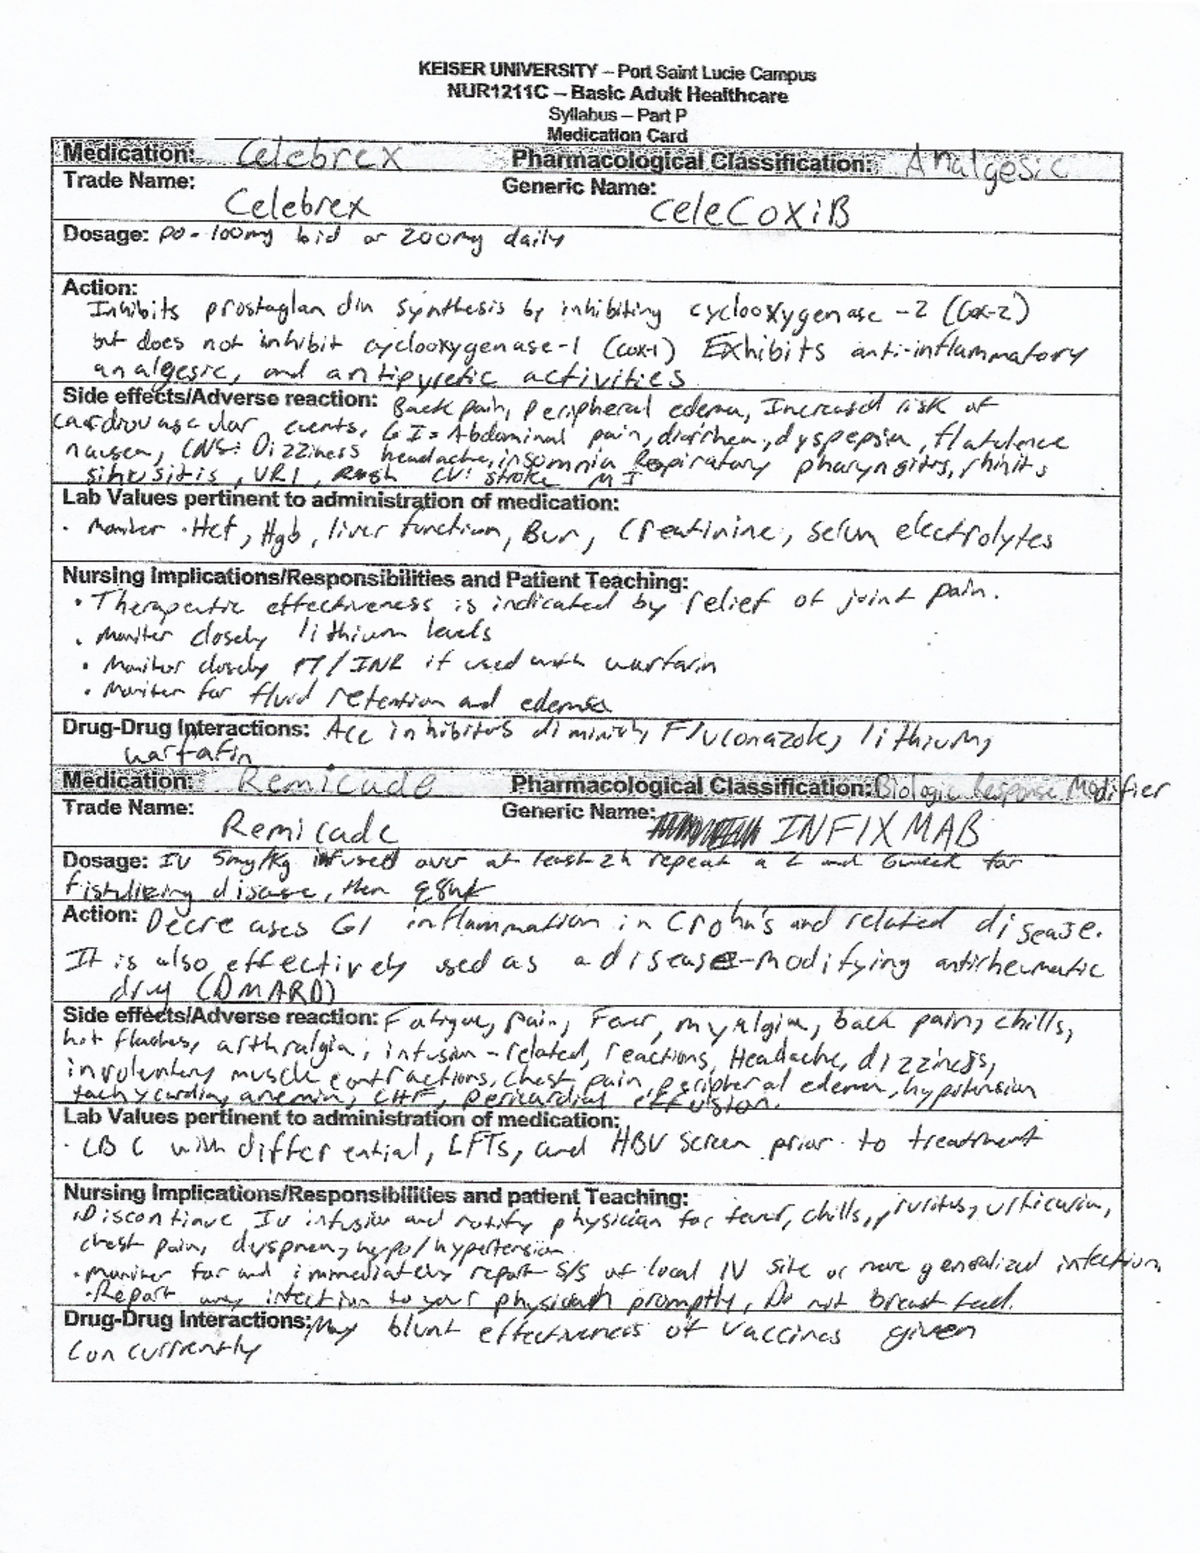 KEISER UNIVERSITY – Port Saint Lucie Campus
NUR1211C – Basic Adult Healthcare
Syllabus – Part P
Medication Card
Medication: Celebrex Pharmacological Classification: Analgesic
Trade Name: Generic Name:
Celebrex celeCoxiB
Dosage: po - 100mg bid or 200mg daily
Action:
Inhibits prostaglandin synthesis by inhibiting cyclooxygenase -2 (Cox-2)
but does not inhibit cyclooxygenase-1 (cox-1) Exhibits anti-inflammatory
analgesic, and antipyretic activities
Side effects/Adverse reaction: Back pain, peripheral edema, Increased risk of
cardiovascular events, GI: Abdominal pain, diarrhea, dyspepsia, flatulence
nausea, CNS: Dizziness headache, insomnia Respiratory pharyngitis, rhinits
sinusitis, URI, Rash CV: stroke MI
Lab Values pertinent to administration of medication:
· Moniter Hct, Hgb, liver function, Bun, Creatinine, serum electrolytes
Nursing Implications/Responsibilities and Patient Teaching:
• Therapeutic effectiveness is indicated by relief of joint pain.
• Moniter closely lithium levels
• Monitor closely PT/INR if used with warfarin
• Moniter for fluid retention and edema
Drug-Drug Interactions: Ace inhibitors diminish, Fluconazole, lithium,
warfarin
Medication: Remicade Pharmacological Classification: Biologic Response Modifier
Trade Name: Generic Name:
Remicade INFIXMAB
Dosage: IV 5mg/kg infused over at least 2h repeat a 2 and 6week for
fistulizing disease, then q8wk
Action: Decreases GI inflammation in Crohn's and related disease.
It is also effectively used as a disease-modifying antirheumatic
drug (DMARD)
Side effects/Adverse reaction: Fatigue, pain, Fever, myalgia, back pain, chills,
hot flashes, arthralgia, infusion-related, reactions, Headache, dizziness,
involuntary muscle contractions, chest pain, peripheral edema, hypotension
tachycardia, anemia, CHF, pericardial effusion.
Lab Values pertinent to administration of medication:
· CBC with differential, LFTs, and HBV screen prior to treatment
Nursing Implications/Responsibilities and patient Teaching:
•Discontinue IV infusion and notify physician for fever, chills, pruritus, urticaria,
chest pain, dyspnea, hypo/hypertension
•Moniter for and immediately report S/S of local IV site or more generalized infection
•Report any infection to your physician promptly, Do not breast feed.
Drug-Drug Interactions: May blunt effectiveness of vaccines given
concurrently